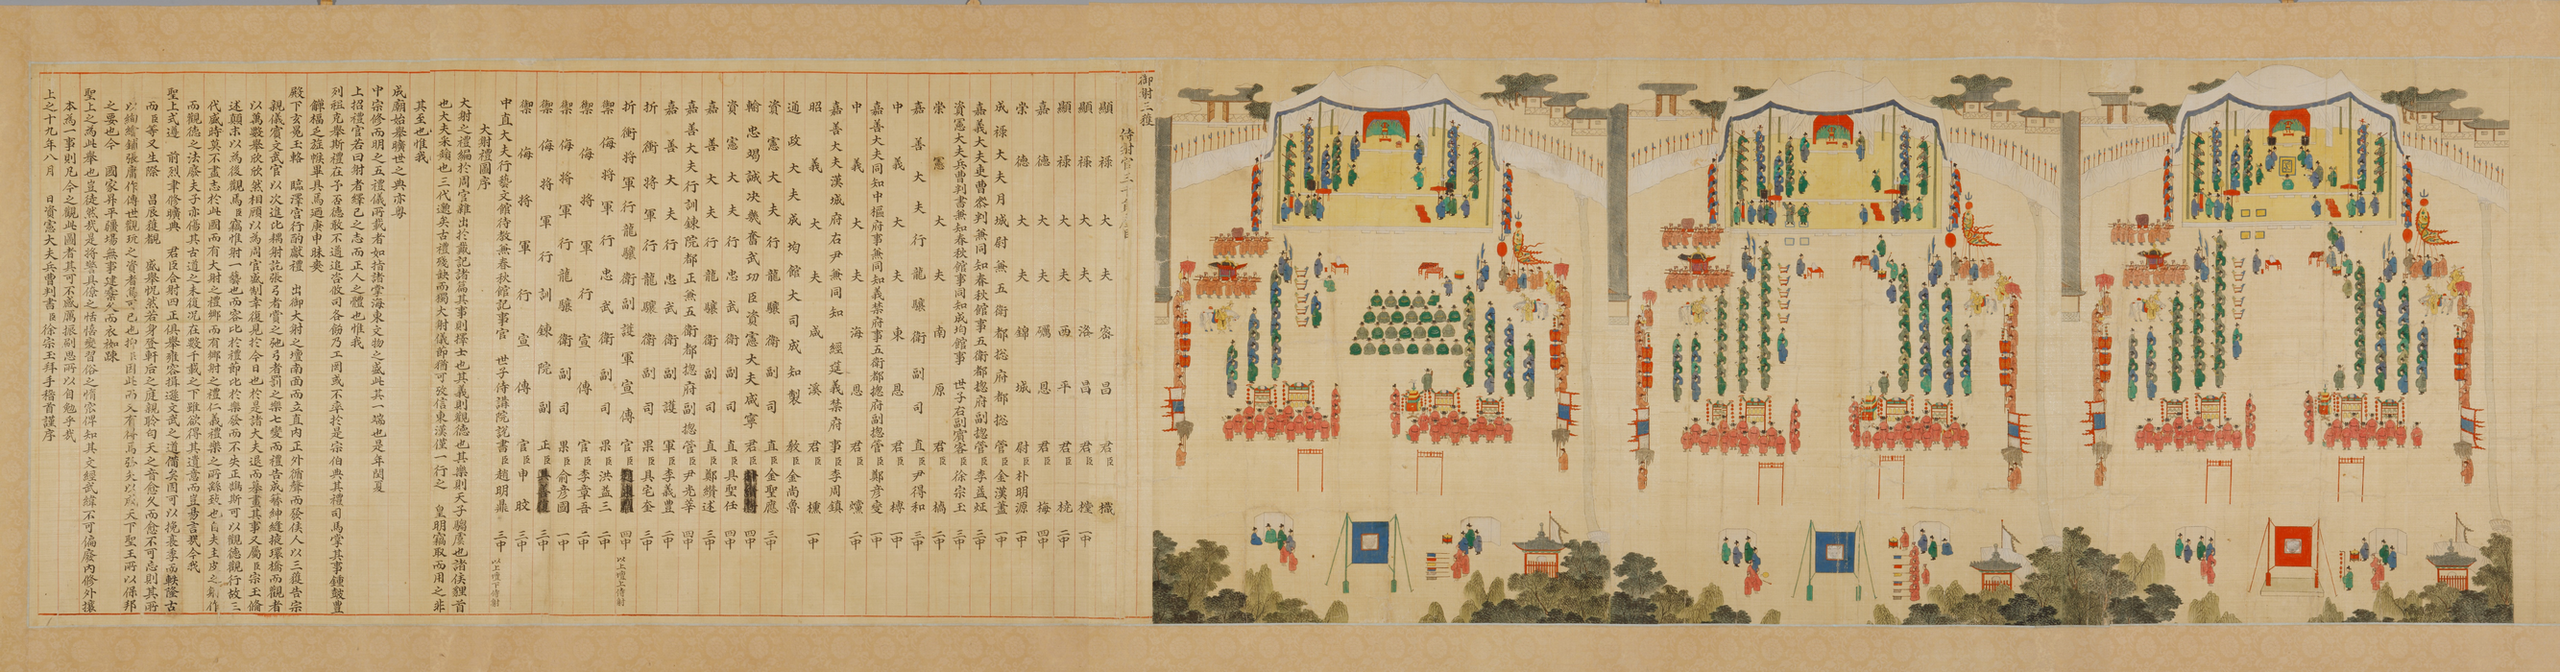 御射三獲
侍射官三十員
顯祿大夫密昌君臣樴 一中
顯祿大夫洛昌君臣樘 一中
顯祿大夫西平君臣橈 二中
嘉德大夫礪恩君臣梅 四中
崇德大夫錦城尉臣朴明源 一中
成祿大夫月城尉兼五衛都捴府都捴管臣金漢藎 一中
嘉義大夫吏曹叅判兼同知春秋館事五衛都捴府副捴管臣李益炡 三中
資憲大夫兵曹判書兼知春秋館事同知成均館事 世子右副賓客臣徐宗玉 三中
崇憲大夫南原君臣橋 二中
嘉善大夫行龍驤衛副司直臣尹得和 三中
中義大夫東恩君臣 一中
嘉善大夫同知中樞府事兼同知義禁府事五衛都捴府副捴管臣鄭彦燮 一中
中義大夫海恩君臣爣 二中
嘉善大夫漢城府右尹兼同知 經筵義禁府事臣李周鎭 三中
昭義大夫咸溪君臣櫄 一中
通政大夫成均館大司成知製敎臣金尚魯 二中
資憲大夫行龍驤衛副司直臣金聖應 三中
輸忠竭誠决幾奮武功臣資憲大夫咸寧君臣 四中
資憲大夫行忠武衛副司直臣具聖任 四中
嘉善大夫行龍驤衛副司直臣鄭纘述 三中
嘉善大夫行訓鍊院都正兼五衛都捴府副捴管臣尹光莘 四中
嘉善大夫行忠武衛副護軍臣李義豊 三中
折衝將軍行龍驤衛副司果臣具宅奎 三中
折衝將軍行龍驤衛副護軍宣傳官臣 四中 以上壇上侍射
禦侮將軍行忠武衛副司果臣洪益三 二中
禦侮將軍行宣傳官臣李章吾 二中
禦侮將軍行龍驤衛副司果臣俞彦國 一中
禦侮將軍行訓鍊院副正臣具善復 三中
禦侮將軍行宣傳官臣申 三中
中直大夫行藝文館待敎兼春秋館記事官 世子侍講院說書臣趙明鼎 三中 以上壇下侍射
大射禮圖序
大射之禮編於周官雜出於戴記諸篇其事則擇士也其義則觀德也其樂則天子騶虞也諸侯貍首
也大夫采蘋也三代邈矣古禮殘缺而獨大射儀節猶可攷信東漢僅一行之 皇明竊取而用之非
其至也惟我
成廟始擧曠世之典亦粤
中宗修而明之五禮儀所載者如指諸掌海東文物之盛此其一端也是年閏夏
上招禮官若曰射者繹己之志而正人之體也惟我
列祖克擧斯禮在予否德敢不遹追咨攸司各飭乃工罔或不率於是宗伯典其禮司馬掌其事鍾皷豊
觶楅乏旌帿畢具焉廼庚申昧爽
殿下玄冕玉輅 臨澤宮行酌獻禮 出御大射之壇南面而立直內正外循聲而發侯人以三獲告宗
親儀賓文武官以次進比耦射訖張弓者賞之弛弓者罰之樂七變而禮告成蔡紳縫掖環橋而觀者
以萬數擧欣欣然相顧以爲周官盛制幸復見於今日也於是諸大夫退而擧畫其事又屬臣宗玉脩
述顛末以爲後觀焉臣竊惟射一藝也而容比於禮節比於樂發而不失正鵠斯可以觀德觀行故三
代盛時莫不盡志於此國而有大射之禮鄕而有鄕射之禮仁義禮樂之所繇致也自夫主皮之射作
而觀德之法廢夫子亦傷其古道之未復況在數千載之下雖欲得其遺意而豈易言哉今我
聖上式遵 前烈聿修曠典 君臣合射四正俱擧雍容揖遜文武之道備矣固可以挽衰季而軼隆古
而臣等又生際 昌辰獲覩 盛擧怳然若身登軒后之庭親聆勻天之音愈久而愈不可忘則其所
以絢繪鋪張庸作傳世觀玩之資者烏可已也抑臣因此而又有得焉弧矢以威天下聖王所以保邦
之要也今 國家昇平疆埸無事建櫜久而衣袽踈
聖上之爲此擧也豈徒然哉是將警其狃恬憘變習俗之惰窳俾知其文經武緯不可偏廢內修外攘
本爲一事則凡今之觀此圖者其可不感厲振刷思所以自勉乎哉
上之十九年八月 日資憲大夫兵曹判書臣徐宗玉拜手稽首謹序